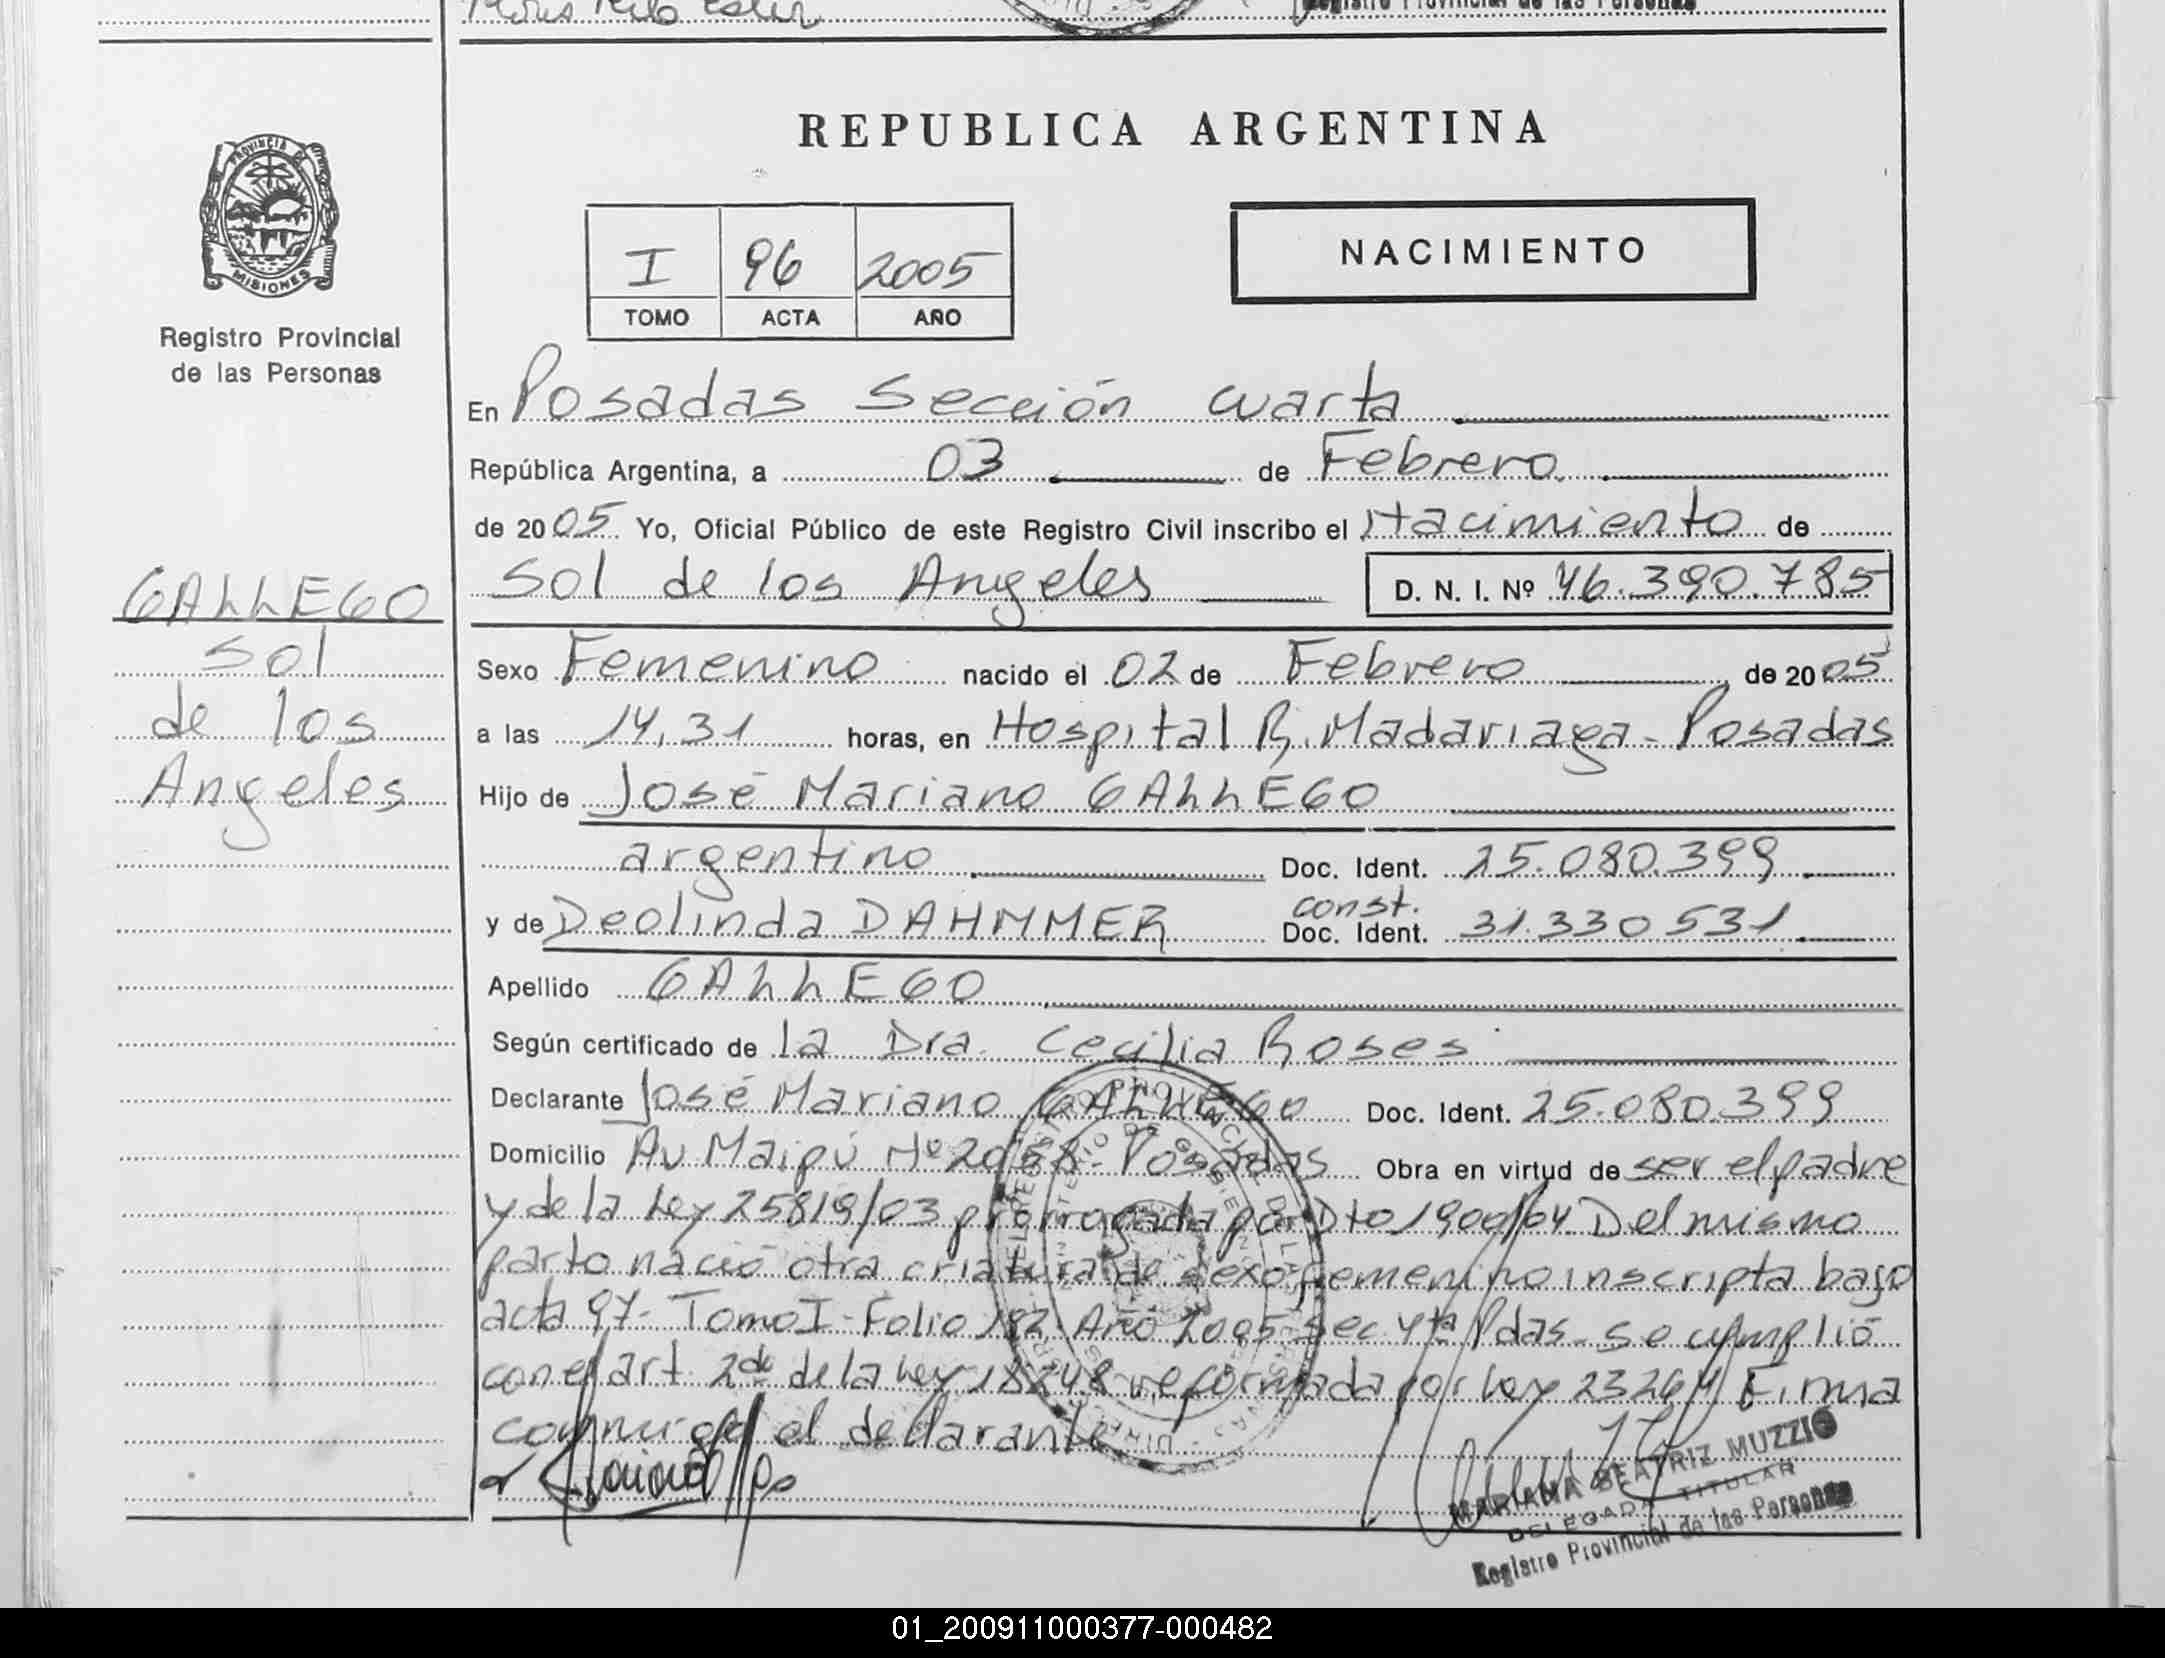 Registro Provincial de las Personas
REPUBLICA ARGENTINA
PROVINCIA DE
MISIONES
Registro Provincial
de las Personas
I 96 2005
TOMO ACTA AÑO
NACIMIENTO
En Posadas Sección cuarta
República Argentina, a 03 de Febrero
de 2005 Yo, Oficial Público de este Registro Civil inscribo el Nacimiento de
Sol de los Angeles D. N. I. Nº 46.390.785
GALLEGO
Sol
de los
Angeles
Sexo Femenino nacido el 02 de Febrero de 2005
a las 14,31 horas, en Hospital R. Madariaga - Posadas
Hijo de José Mariano GALLEGO
argentino Doc. Ident. 25.080.399
const.
y de Deolinda DAHMMER Doc. Ident. 31.330531
Apellido GALLEGO
Según certificado de la Dra. Cecilia Roses
Declarante José Mariano GALLEGO Doc. Ident. 25.080.399
Domicilio Av Maipú Nº 2068 - Posadas Obra en virtud de ser el padre
y de la Ley 25819/03 prorrogada por Dto 1900/04. Del mismo
parto nació otra criatura de sexo femenino inscripta bajo
acta 97 - Tomo I - Folio 182 Año 2005 Sec. 4ta Pdas - se cumplió
con el art. 2do de la Ley 18248 reformada por Ley 23264 Firma
conmigo el declarante
MARIANA BEATRIZ MUZZIO
DELEGADA TITULAR
Registro Provincial de las Personas
01_200911000377-000482